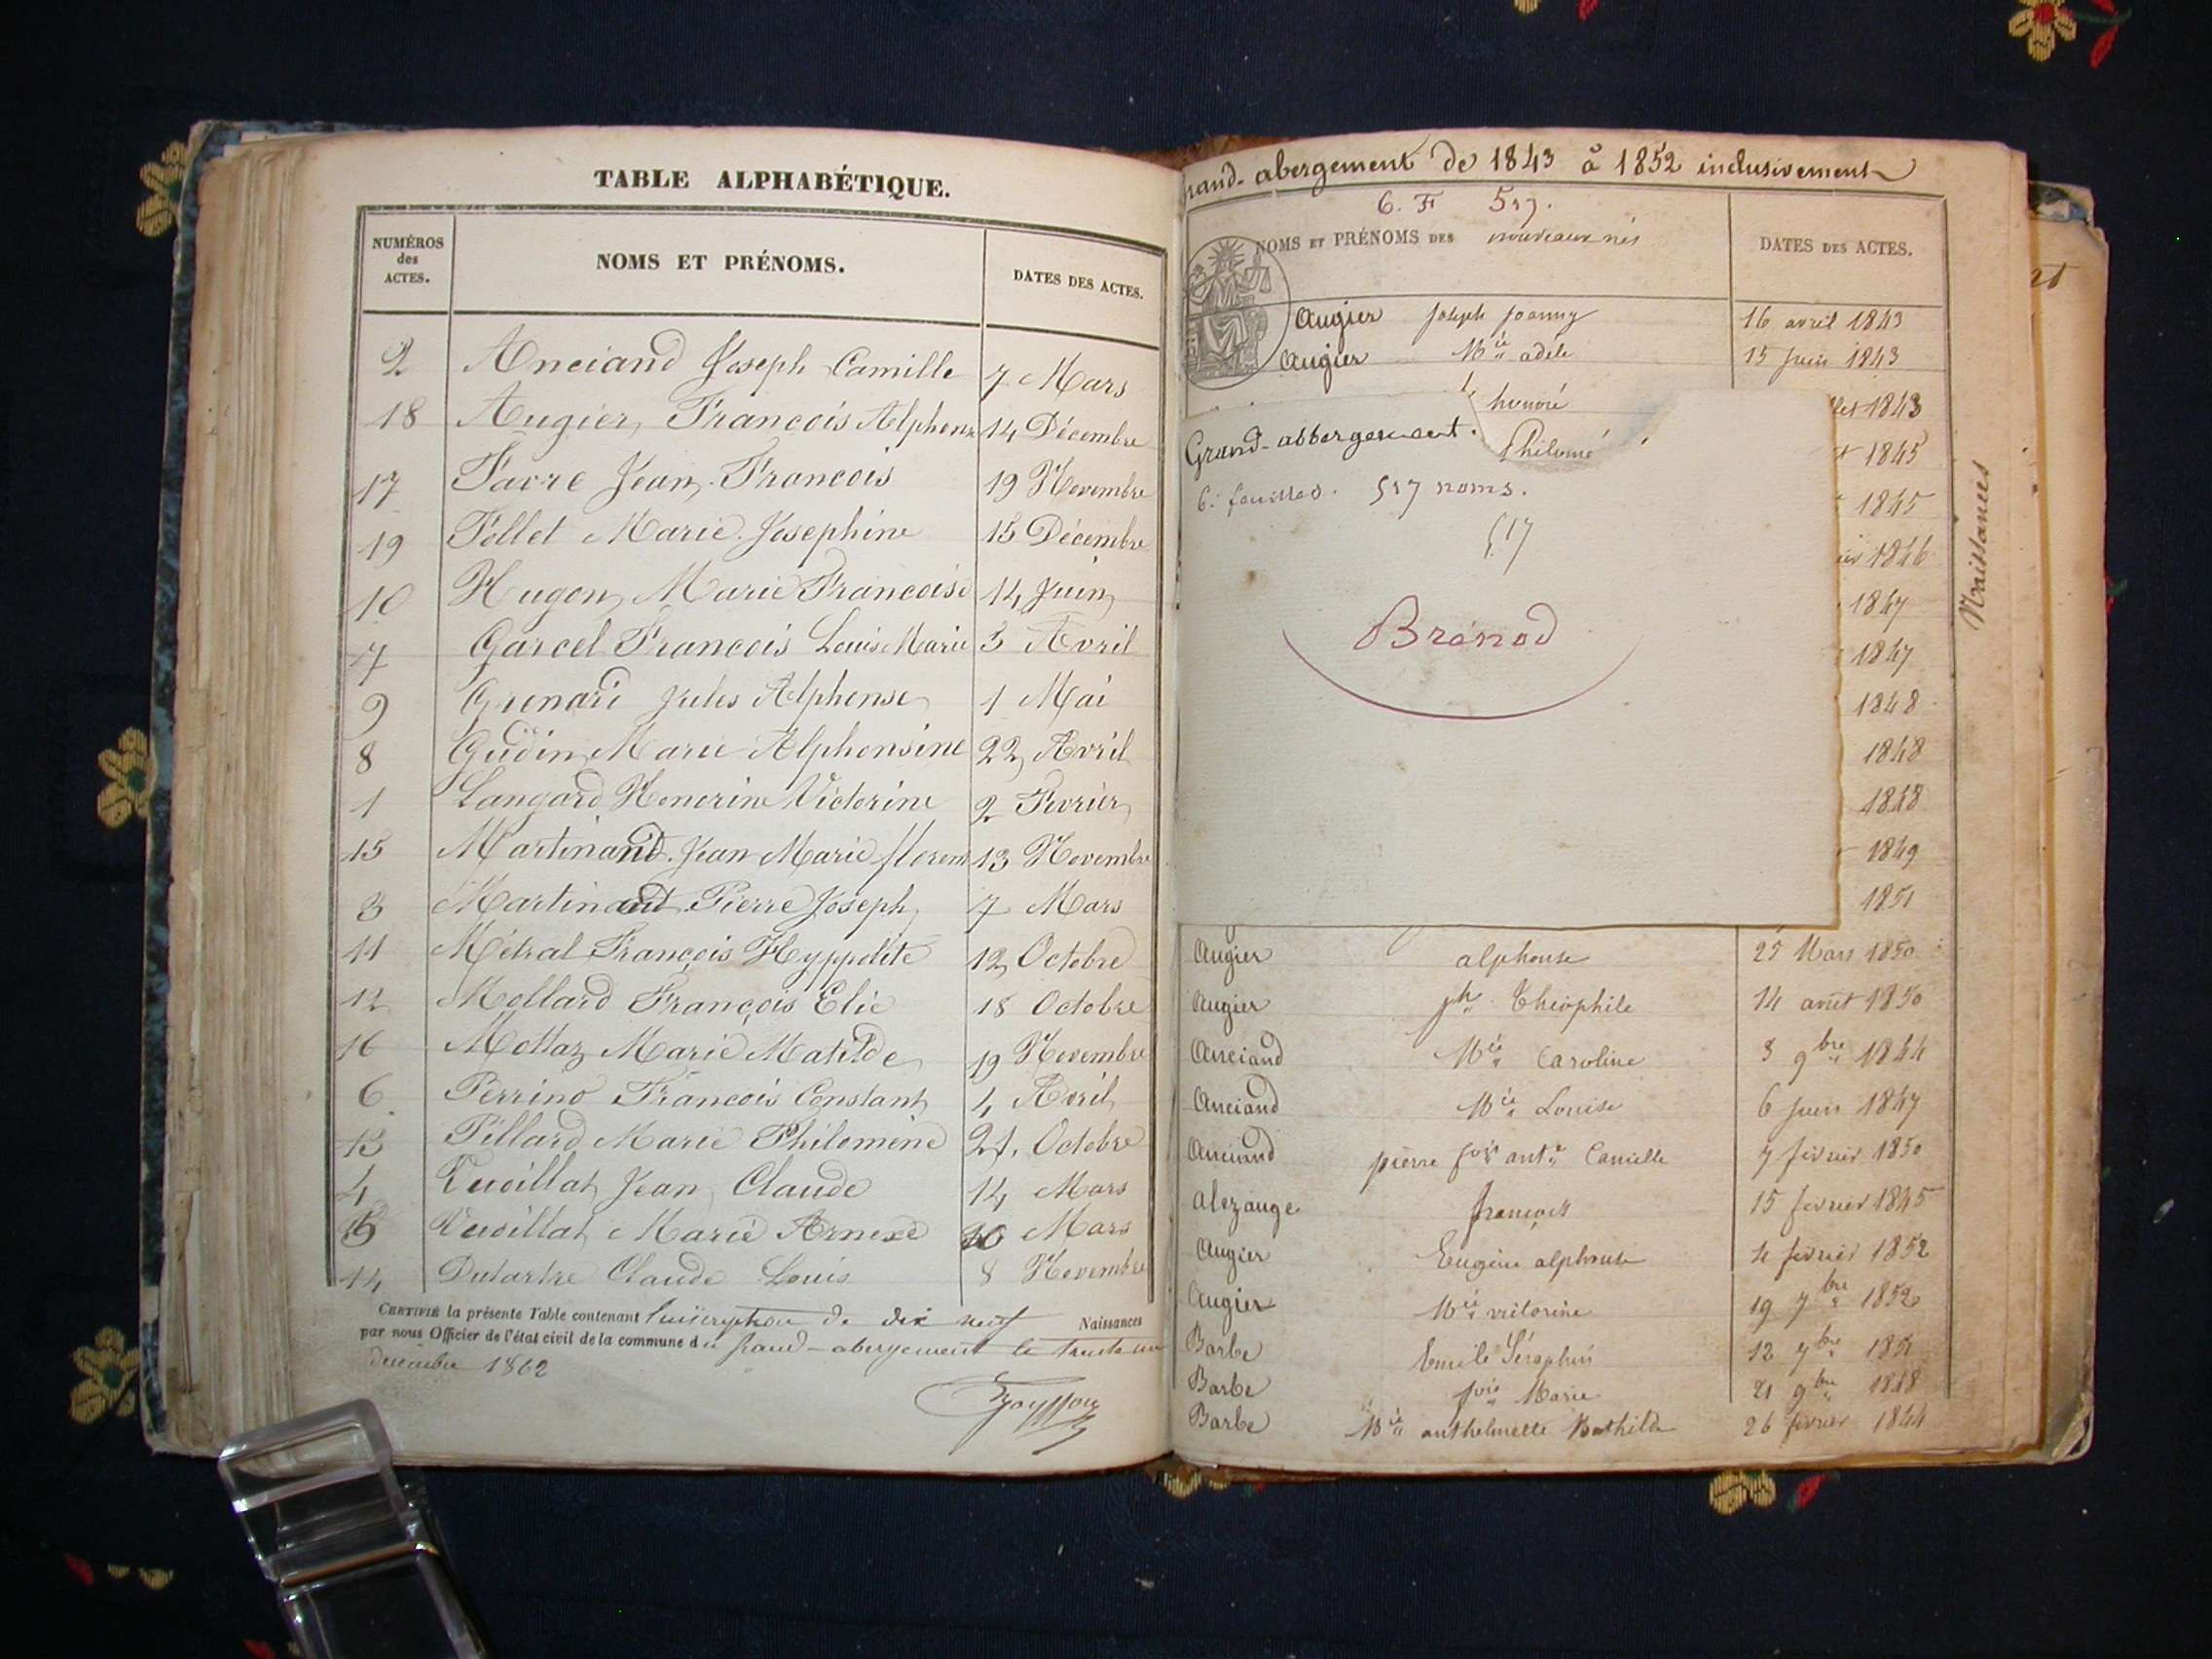 TABLE ALPHABÉTIQUE.
NUMÉROS des ACTES.
NOMS ET PRÉNOMS.
DATES DES ACTES.
2 Anciand Joseph Camille 7 Mars
18 Augier François Alphonse 14 Décembre
17 Favre Jean François 19 Novembre
19 Follet Marie Josephine 15 Décembre
10 Hugon Marie Francoise 14 Juin
7 Garcel Francois Louis Marie 3 Avril
9 Grenard Jules Alphonse 1 Mai
8 Gudin Marie Alphonsine 22 Avril
1 Langard Honorine Victorine 2 Fevrier
15 Martinand Jean Marie 13 Novembre
3 Martinand Pierre Joseph 7 Mars
11 Métral François Hyppolite 12 Octobre
12 Mollard François Elie 18 Octobre
16 Mottaz Marie Matilde 19 Novembre
6 Perrino François Constant 4 Avril
13 Pillard Marie Philomène 21 Octobre
4 Vuoillat Jean Claude 14 Mars
5 Vuoillat Marie Mars
14 Dutartre Claude Louis 8 Novembre
CERTIFIÉ la présente Table contenant l'inscription de dix neuf Naissances
par nous Officier de l'état civil de la commune du Grand-abergement le trente un
décembre 1862
rand-abergement de 1843 à 1852 inclusivement
6. F 517.
NOMS ET PRÉNOMS DES nouveaux nés
DATES DES ACTES.
Augier Joseph Joanny 16 avril 1843
Augier Mie adèle 15 Juin 1843
honoré 1843
Grand-abbergement. Philomé 1845
6 feuilles. 517 noms. 1845
517
1846
1847
Brénod
1847
1848
1848
1848
1849
1851
Naissances
Augier alphonse 25 Mars 1850
Augier jh Théophile 14 août 1850
Anciand Mie Caroline 3 9bre 1844
Anciand Mie Louise 6 Juin 1847
Anciand pierre fois ante Camille 7 février 1850
alezange françois 15 février 1845
Augier Eugène alphonse 4 février 1852
Augier Mie victorine 19 7bre 1852
Barbe Emile Séraphin 12 7bre 1851
Barbe fois Marie 21 9bre 1848
Barbe Mie anthelmette Mathilde 26 février 1844